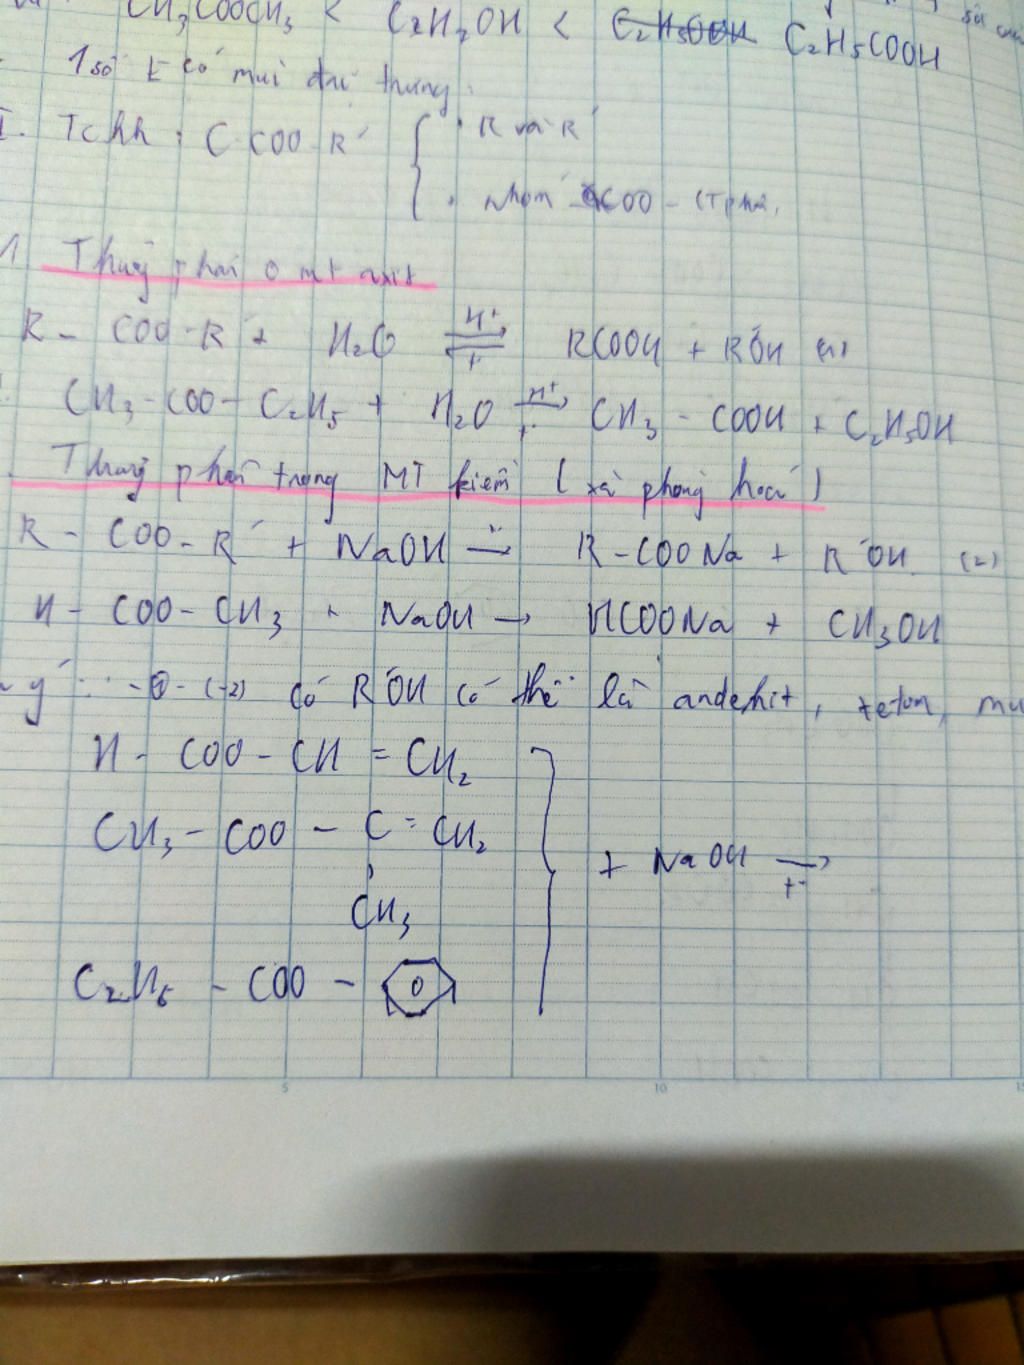 CH3COOCH3 < C2H5OH < C2H5COOH
1 số E có mùi đặc trưng.
I. Tchh : C COO-R' { • R và R'
• nhóm -COO-
1 Thuỷ phân ở mt axit
R - COO-R' + H2O ⇌ (H+, t°) RCOOH + R'OH (1)
CH3-COO-C2H5 + H2O ⇌ (H+, t°) CH3-COOH + C2H5OH
Thuỷ phân trong MT kiềm (xà phòng hoá)
R - COO - R' + NaOH → R-COONa + R'OH (2)
H - COO - CH3 + NaOH → HCOONa + CH3OH
ý : (2) có R'OH có thể là anđehit, xeton, mu
H - COO - CH = CH2
CH3 - COO - C = CH2
+ NaOH → t°
CH3
C2H5 - COO -
5 10